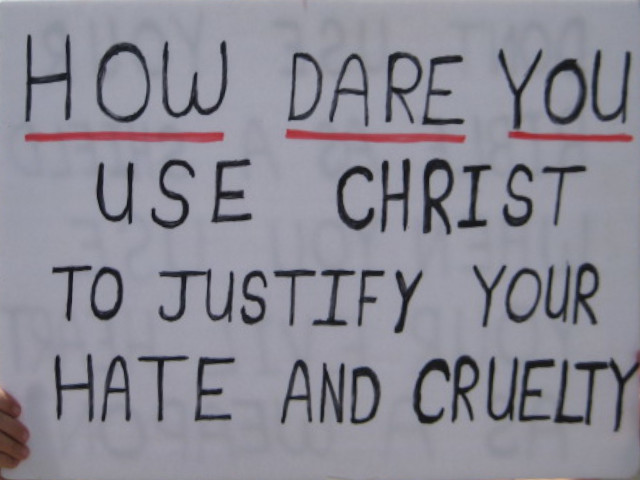 HOW DARE YOU
USE CHRIST
TO JUSTIFY YOUR
HATE AND CRUELTY